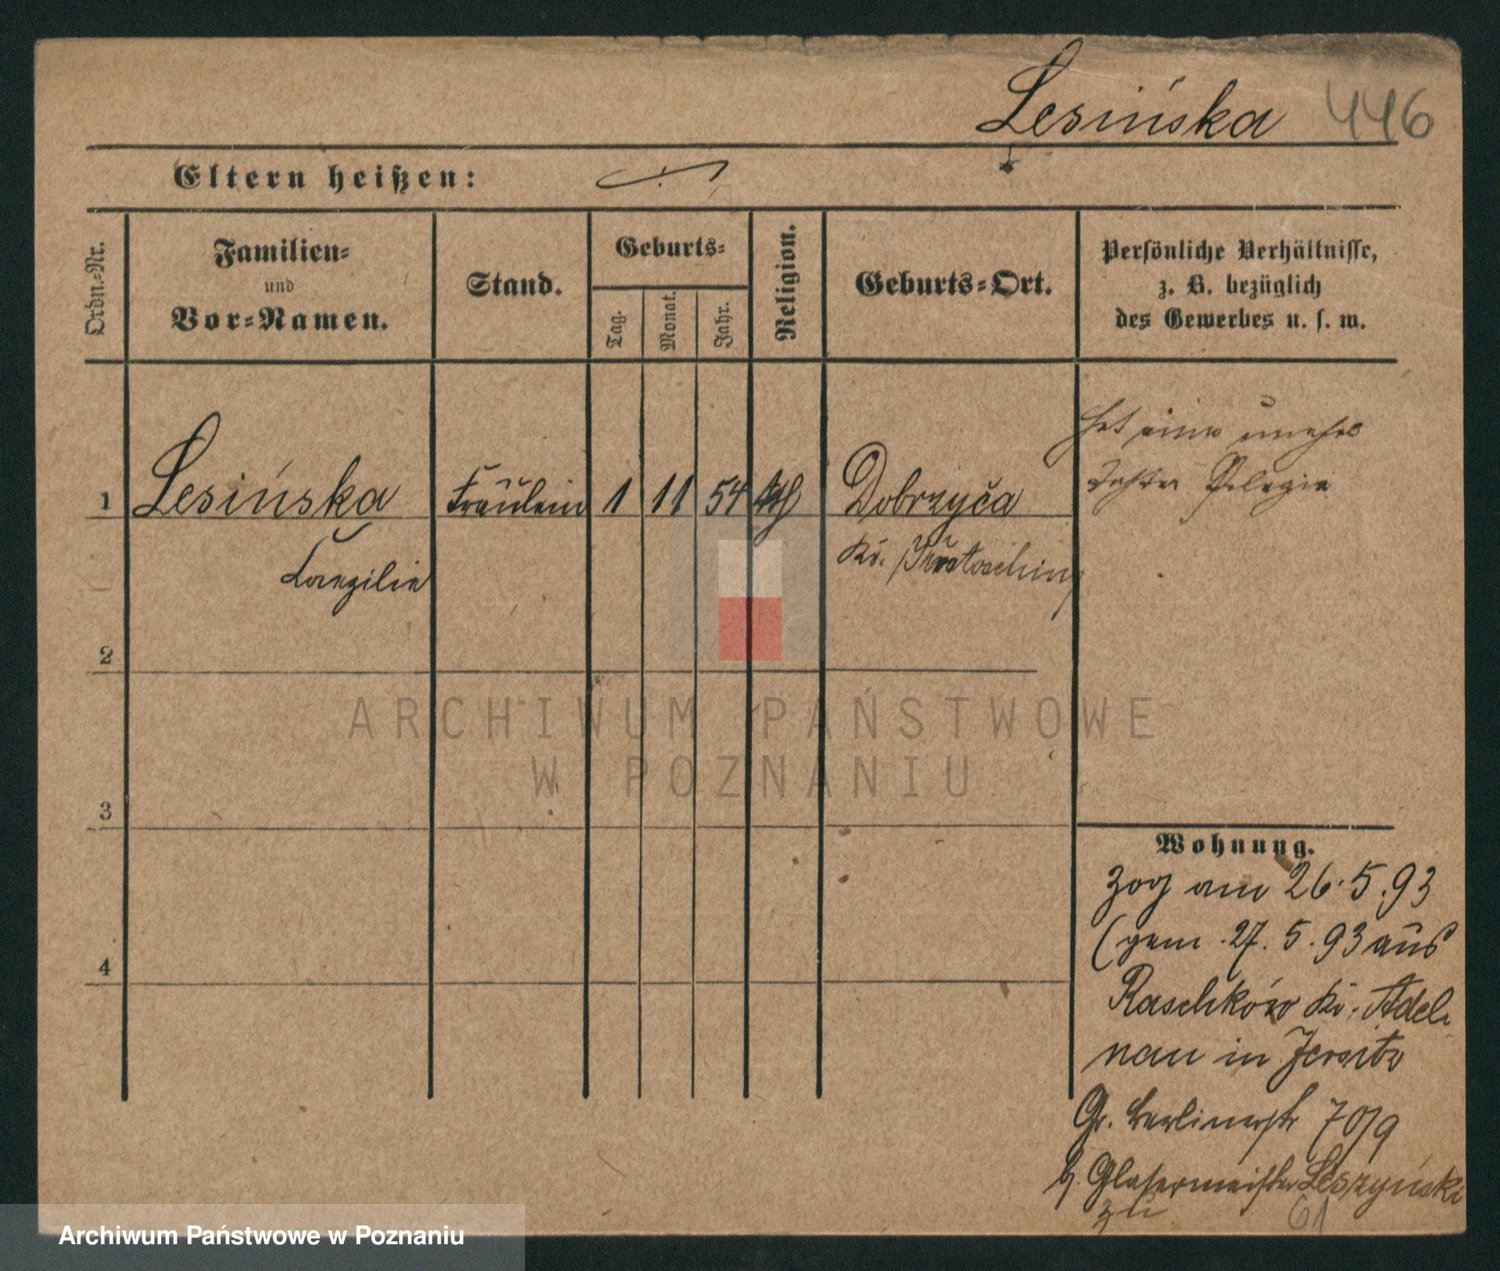 Lesińska 446
Eltern heißen:
Ordn.-Nr.
Familien-
und
Vor-Namen.
Stand.
Geburts-
Tag.
Monat.
Jahr.
Religion.
Geburts-Ort.
Persönliche Verhältnisse,
z. B. bezüglich
des Gewerbes u. s. w.
1 Lesińska Fräulein 1 11 54 kth Dobrzyca
Caezilie
Kr. Krotoschin
hat eine unehel
Tochter Pelagia
2
3
4
ARCHIWUM PAŃSTWOWE
W POZNANIU
Wohnung.
zog am 26.5.93
(gem. 27.5.93 aus
Raschków Kr. Adel-
nau in Jersitz
Gr. Berlinerstr 70/9
b. Glasermeister Leszyński
zu 61
Archiwum Państwowe w Poznaniu